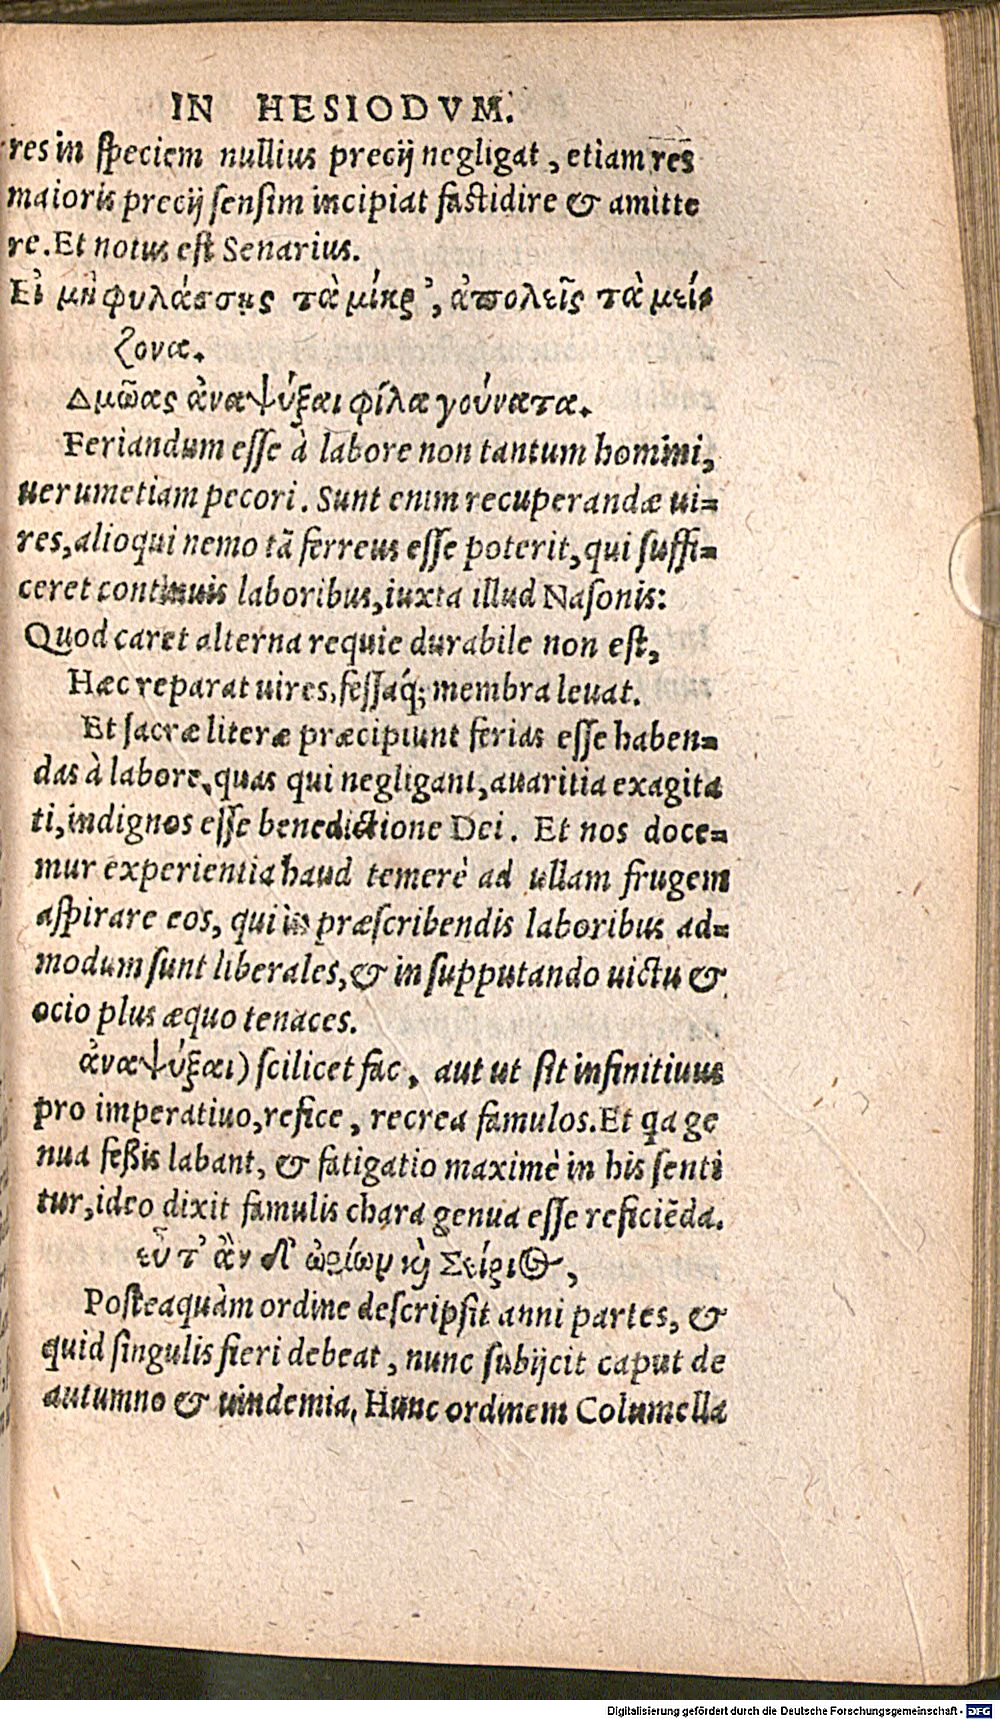 IN HESIODVM.
res in speciem nullius precij negligat, etiam res
maioris precij sensim incipiat fastidire & amitte
re. Et notus est Senarius.
Εἰ μὴ φυλάσσης τὰ μίκρ’, ἀπολεῖς τὰ μεί
ζονα.
Δμῶας ἀναψύξαι φίλα γούνατα.
Feriandum esse à labore non tantum homini,
uerumetiam pecori. Sunt enim recuperandæ ui=
res, alioqui nemo tã ferreus esse poterit, qui suffi=
ceret continuis laboribus, iuxta illud Nasonis:
Quod caret alterna requie durabile non est,
Hæc reparat uires, fessaq́; membra leuat.
Et sacræ literæ præcipiunt ferias esse haben=
das à labore, quas qui negligant, auaritia exagita
ti, indignos esse benedictione Dei. Et nos doce=
mur experientia haud temerè ad ullam frugem
aspirare eos, qui in præscribendis laboribus ad=
modum sunt liberales, & in supputando uictu &
ocio plus æquo tenaces.
ἀναψύξαι) scilicet fac, aut ut sit infinitiuus
pro imperatiuo, refice, recrea famulos. Et qa ge
nua feßis labant, & fatigatio maximè in his senti
tur, ideo dixit famulis chara genua esse reficiẽda.
εὖ τ’ ἂν δ’ ὠρίων καὶ Σείριος,
Posteaquàm ordine descripsit anni partes, &
quid singulis fieri debeat, nunc subijcit caput de
autumno & uindemia. Hunc ordinem Columella
Digitalisierung gefördert durch die Deutsche Forschungsgemeinschaft - DFG